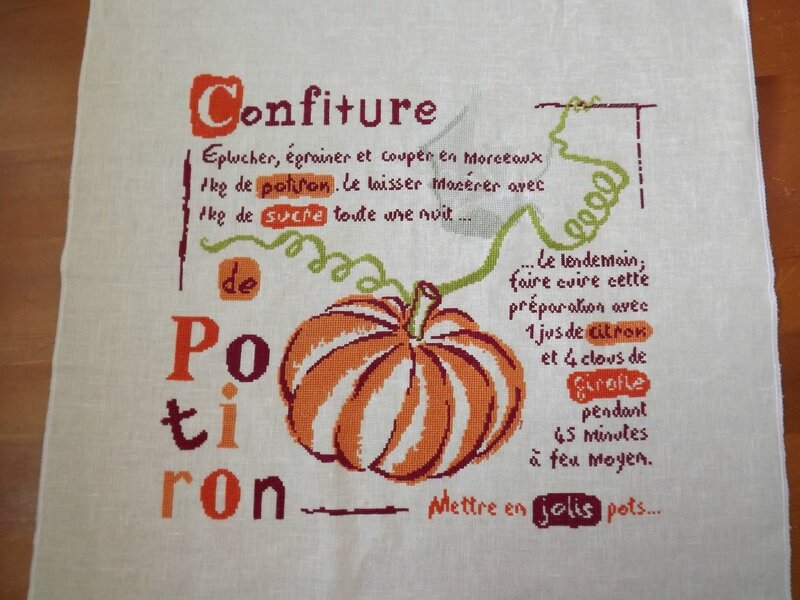 Confiture
Eplucher, égrainer et couper en morceaux
1kg de potiron. Le laisser macérer avec
1kg de sucre toute une nuit ...
de
Po
ti
ron
... Le lendemain,
faire cuire cette
préparation avec
1 jus de citron
et 4 clous de
girofle
pendant
45 minutes
à feu moyen.
Mettre en jolis pots...